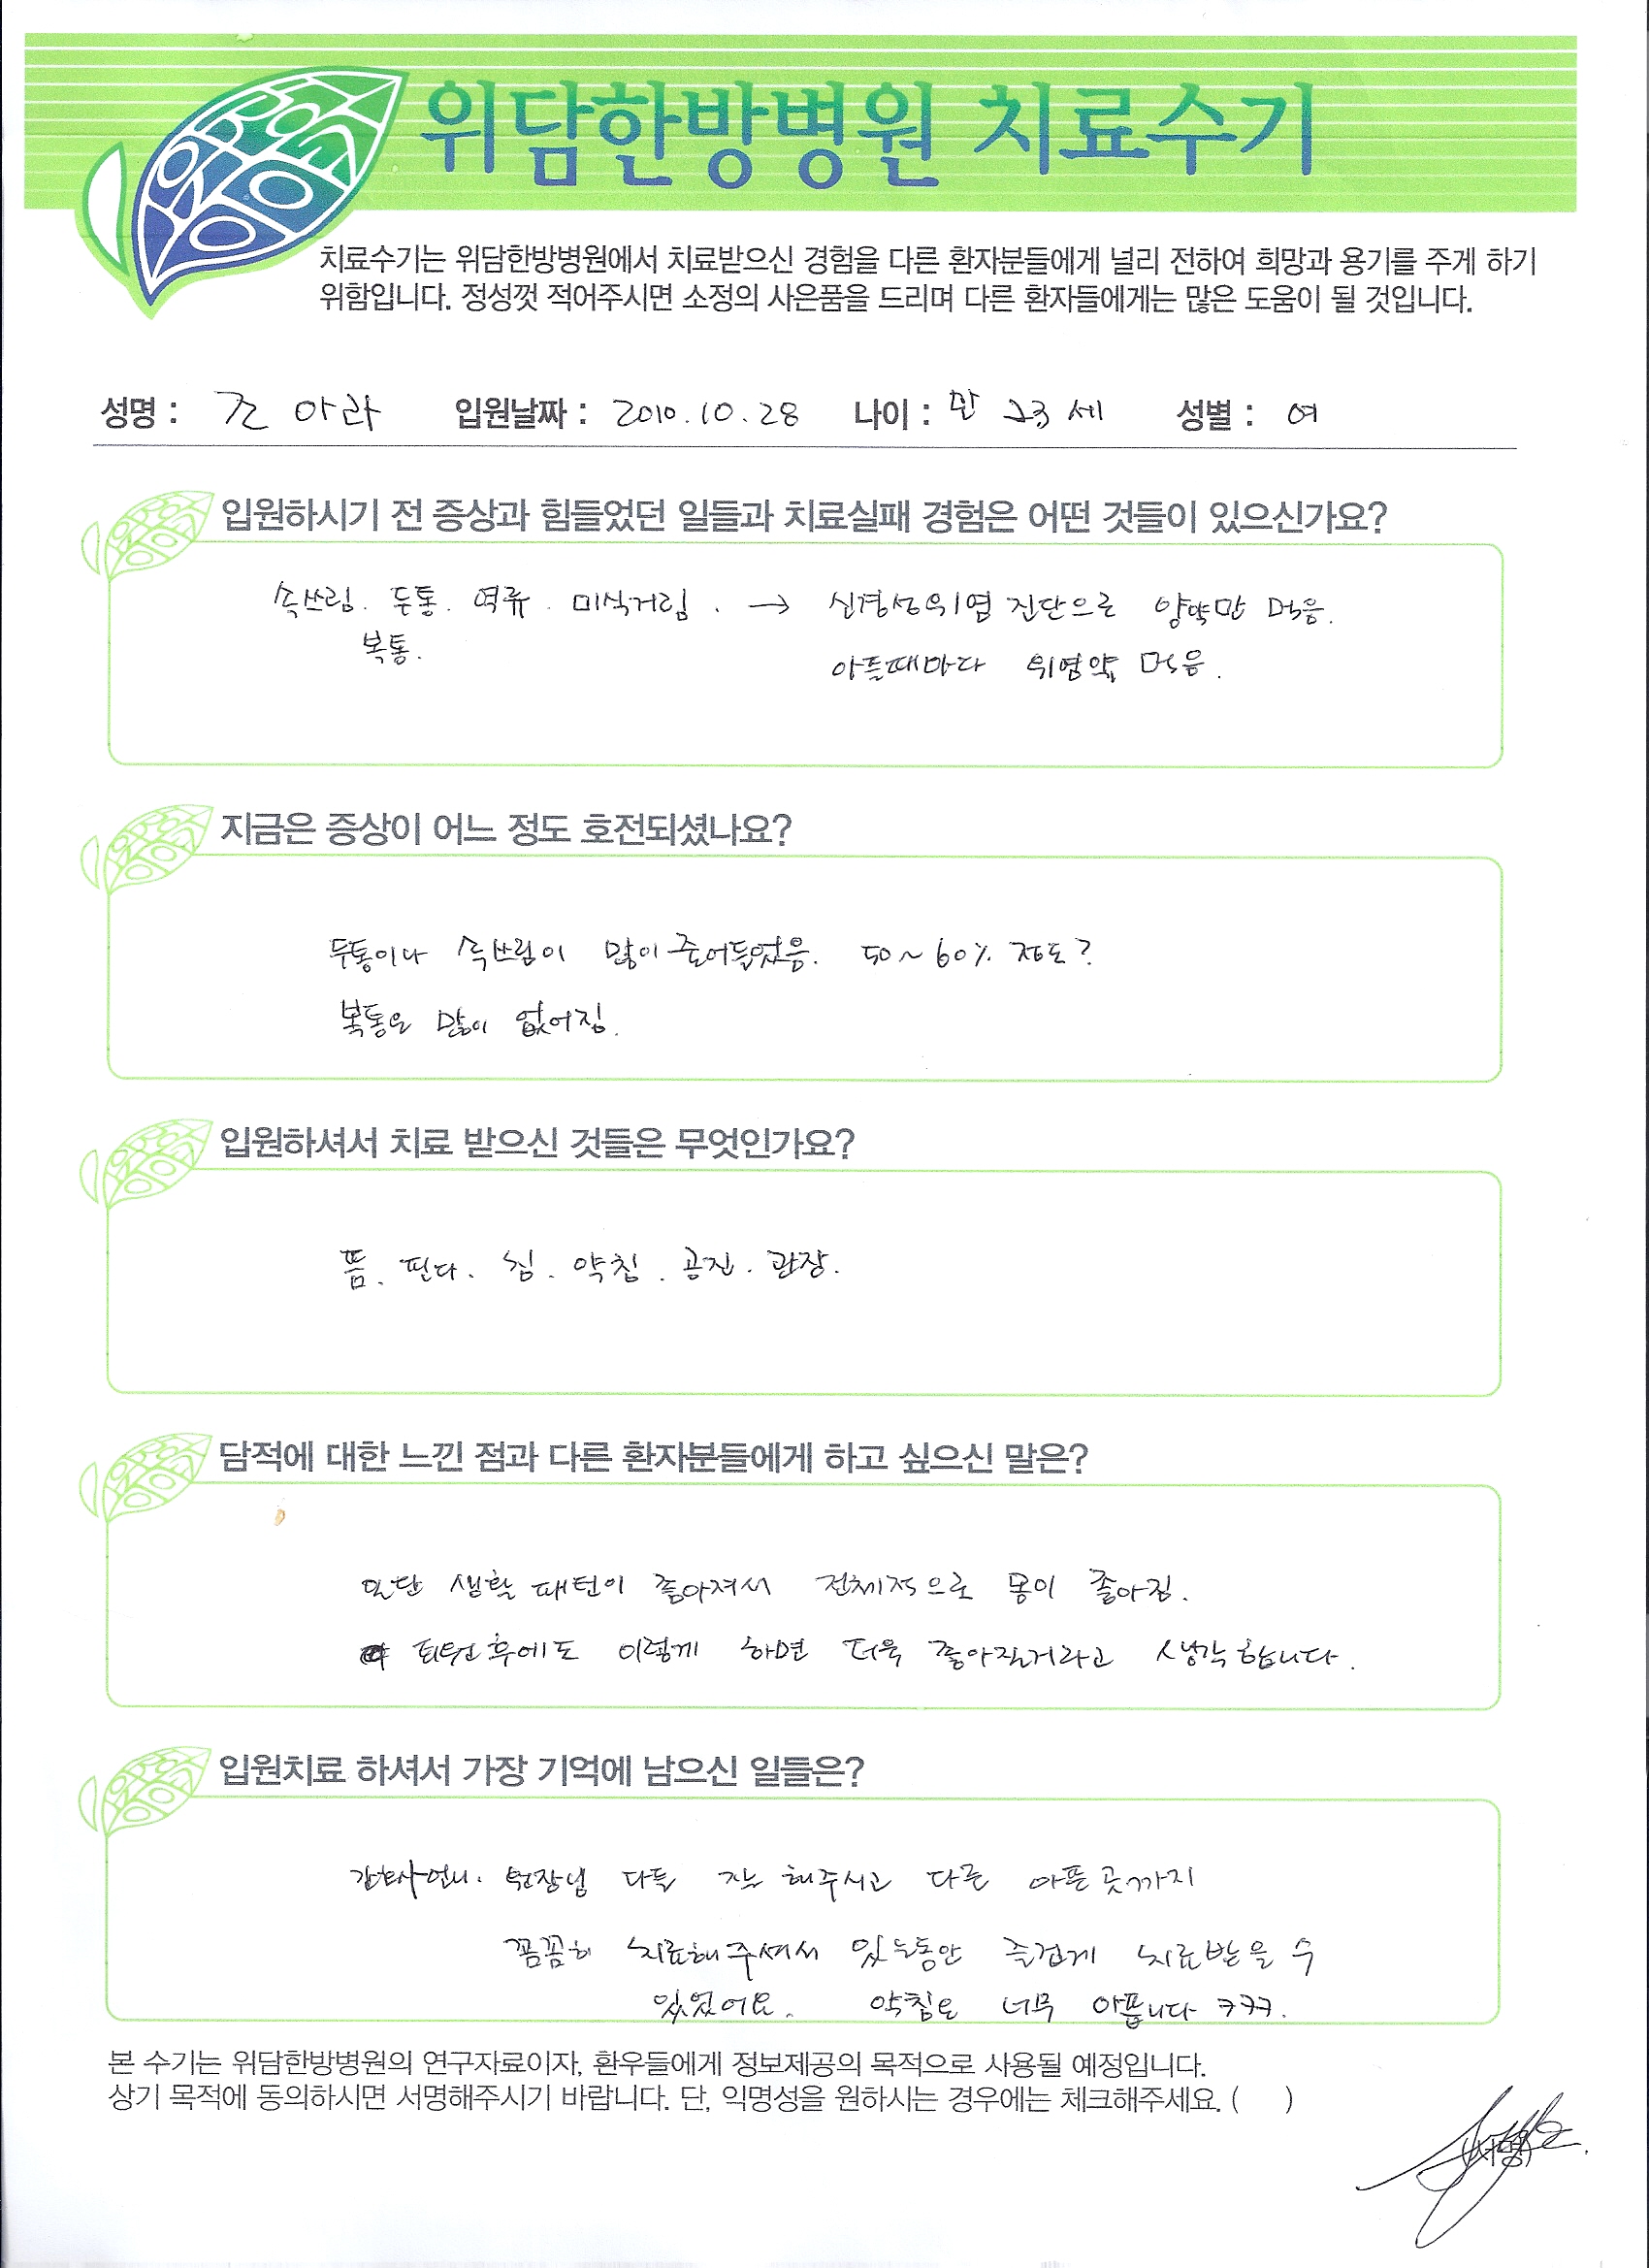 위담한방병원 치료수기
치료수기는 위담한방병원에서 치료받으신 경험을 다른 환자분들에게 널리 전하여 희망과 용기를 주게 하기
위함입니다. 정성껏 적어주시면 소정의 사은품을 드리며 다른 환자들에게는 많은 도움이 될 것입니다.
성명 : 조 아라 입원날짜 : 2010.10.28 나이 : 만 23세 성별 : 여
입원하시기 전 증상과 힘들었던 일들과 치료실패 경험은 어떤 것들이 있으신가요?
속쓰림. 두통. 역류. 미식거림. → 신경성위염 진단으로 양약만 먹음.
복통. 아플때마다 위염약 먹음.
지금은 증상이 어느 정도 호전되셨나요?
두통이나 속쓰림이 많이 줄어들었음. 50~60% 정도?
복통은 많이 없어짐.
입원하셔서 치료 받으신 것들은 무엇인가요?
뜸. 핀다. 침. 약침. 공진. 관장.
담적에 대한 느낀 점과 다른 환자분들에게 하고 싶으신 말은?
일단 생활 패턴이 좋아져서 전체적으로 몸이 좋아짐.
퇴원후에도 이렇게 하면 더욱 좋아질거라고 생각합니다.
입원치료 하셔서 가장 기억에 남으신 일들은?
간호사언니. 원장님 다들 잘 해주시고 다른 아픈곳까지
꼼꼼히 치료해주셔서 있는동안 즐겁게 치료받을 수
있었어요. 약침은 너무 아픕니다 ㅋㅋㅋ.
본 수기는 위담한방병원의 연구자료이자, 환우들에게 정보제공의 목적으로 사용될 예정입니다.
상기 목적에 동의하시면 서명해주시기 바랍니다. 단, 익명성을 원하시는 경우에는 체크해주세요. ( )
(서명)